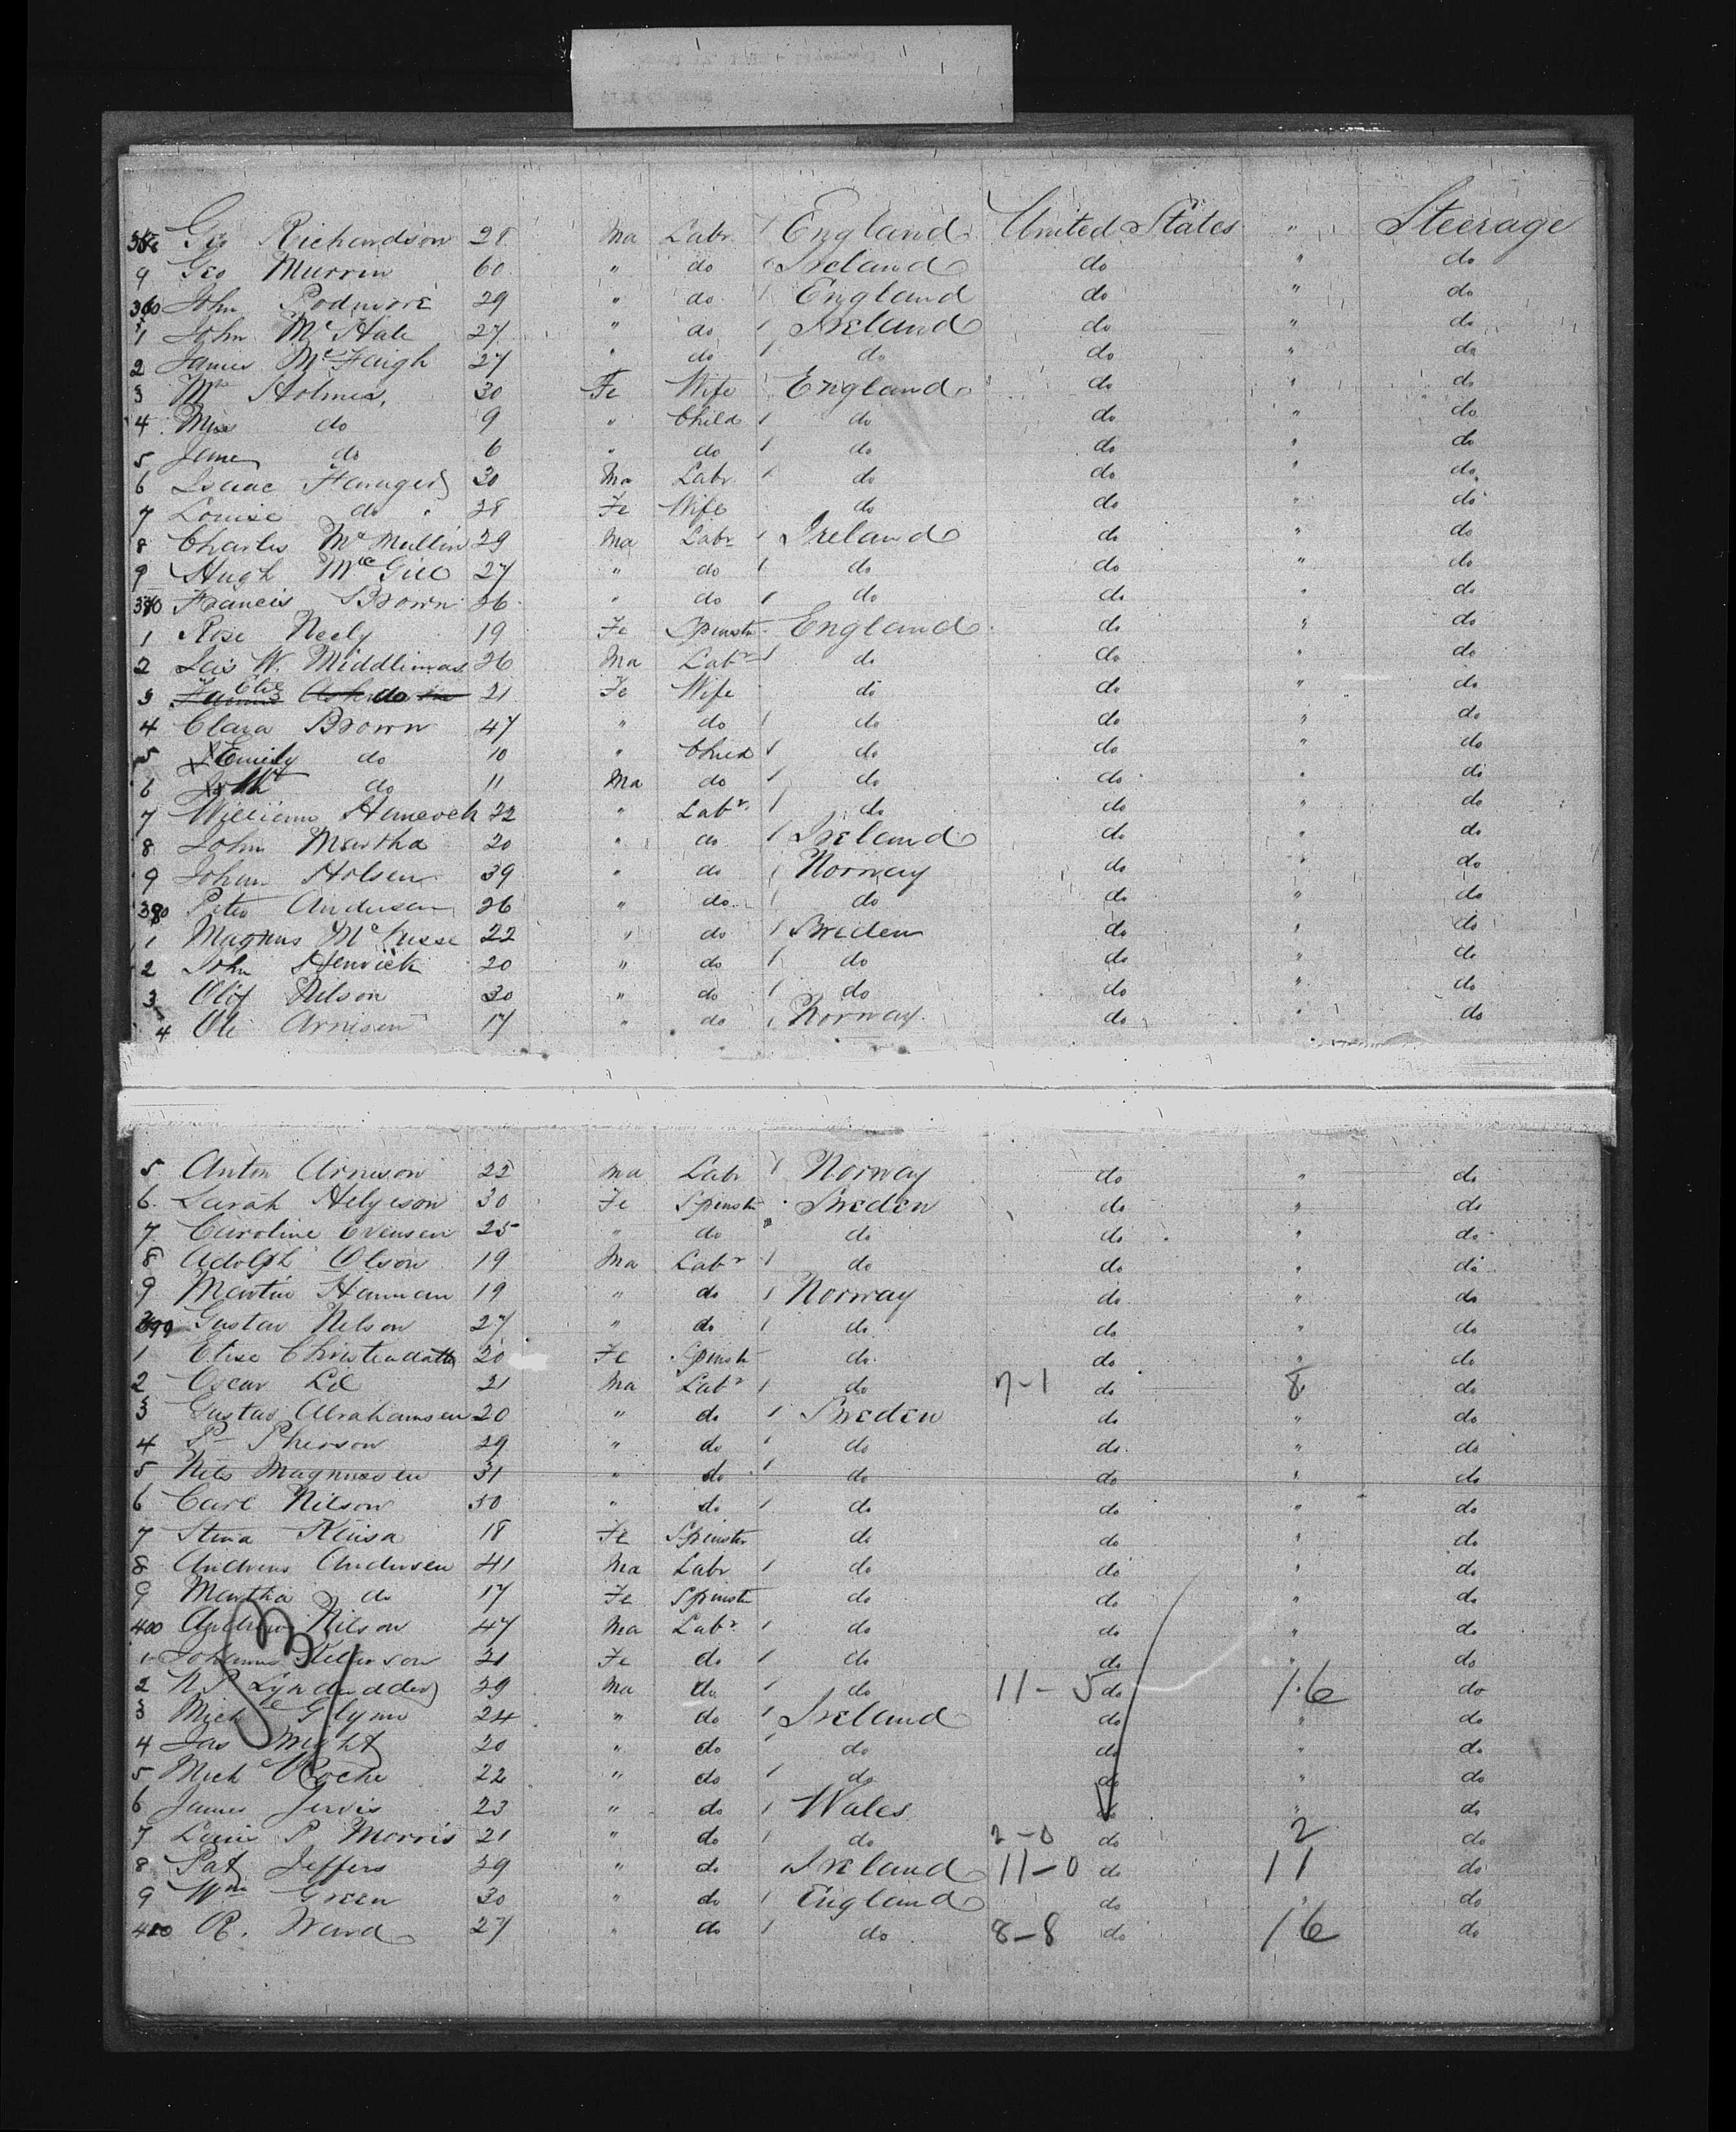 358 Geo Richardson 28 Ma Labr / England United States " Steerage
9 Geo Murrin 60 " do / Ireland do " do
360 John Podmore 29 " do / England do " do
1 John McHale 27 " do / Ireland do " do
2 James McFaigh 27 " do / do do " do
3 Mrs Holmes, 30 Fe Wife England do " do
4 Miss do 9 " Child / do do " do
5 Jane do 6 " do / do do " do
6 Isaac 30 Ma Labr / do do " do
7 Louise do 28 Fe Wife do do " do
8 Charles McMullin 29 Ma Labr / Ireland do " do
9 Hugh McGill 27 " do / do do " do
370 Francis Brown 26 " do / do do " do
1 Rose Neely 19 Fe Spinstr England do " do
2 Jas W. Middlimas 26 Ma Labr / do do " do
3 do 21 Fe Wife do do " do
4 Clara Brown 47 " do / do do " do
5 Emily do 10 " Child / do do " do
6 do 11 Ma do / do do " do
7 William Hancock 22 " Labr / do do " do
8 John Murtha 20 " do / Ireland do " do
9 Johan Holsen 39 " do / Norway do " do
380 Peter Andersen 26 " do / do do " do
1 Magnus 22 " do / Sweden do " do
2 John Henrick 20 " do / do do " do
3 Olof Nilson 30 " do / do do " do
4 Ole Arnisen 17 " do / Norway do " do
5 Anton Arnison 22 Ma Labr / Norway do " do
6 Sarah Helgeson 30 Fe Spinstr Sweden do " do
7 Caroline Evensen 25 " do " do do " do
8 Adolph Olson 19 Ma Labr / do do " do
9 Martin Hannan 19 " do / Norway do " do
390 Gustav Nelson 27 " do / do do " do
1 Elise Christendatter 20 Fe Spinstr do do " do
2 Oscar Lil 21 Ma Labr / do 7-1 do 8 do
3 Gustav Abrahamsen 20 " do / Sweden do " do
4 P Pherson 29 " do / do do " do
5 Nils Magnussen 31 " do / do do " do
6 Carl Nilson 30 " do / do do " do
7 Stina 18 Fe Spinster do do " do
8 Andreas Andersen 41 Ma Labr / do do " do
9 Martha do 17 Fe Spinstr do do " do
400 Andrew Nilson 47 Ma Labr / do do " do
1 Johanna 21 Fe do / do do " do
2 N P 39 Ma do / do 11-5 do 16 do
3 Mich Glynn 24 " do / Ireland do " do
4 Jas 20 " do / do do " do
5 Mich Roche 22 " do / do do " do
6 James Jervis 23 " do / Wales do " do
7 Louis P Morris 21 " do / do 2-0 do 2 do
8 Pat Jeffers 39 " do Ireland 11-0 do 11 do
9 Wm Green 30 " do / England do " do
410 R. Ward 27 " do / do 8-8 do 16 do